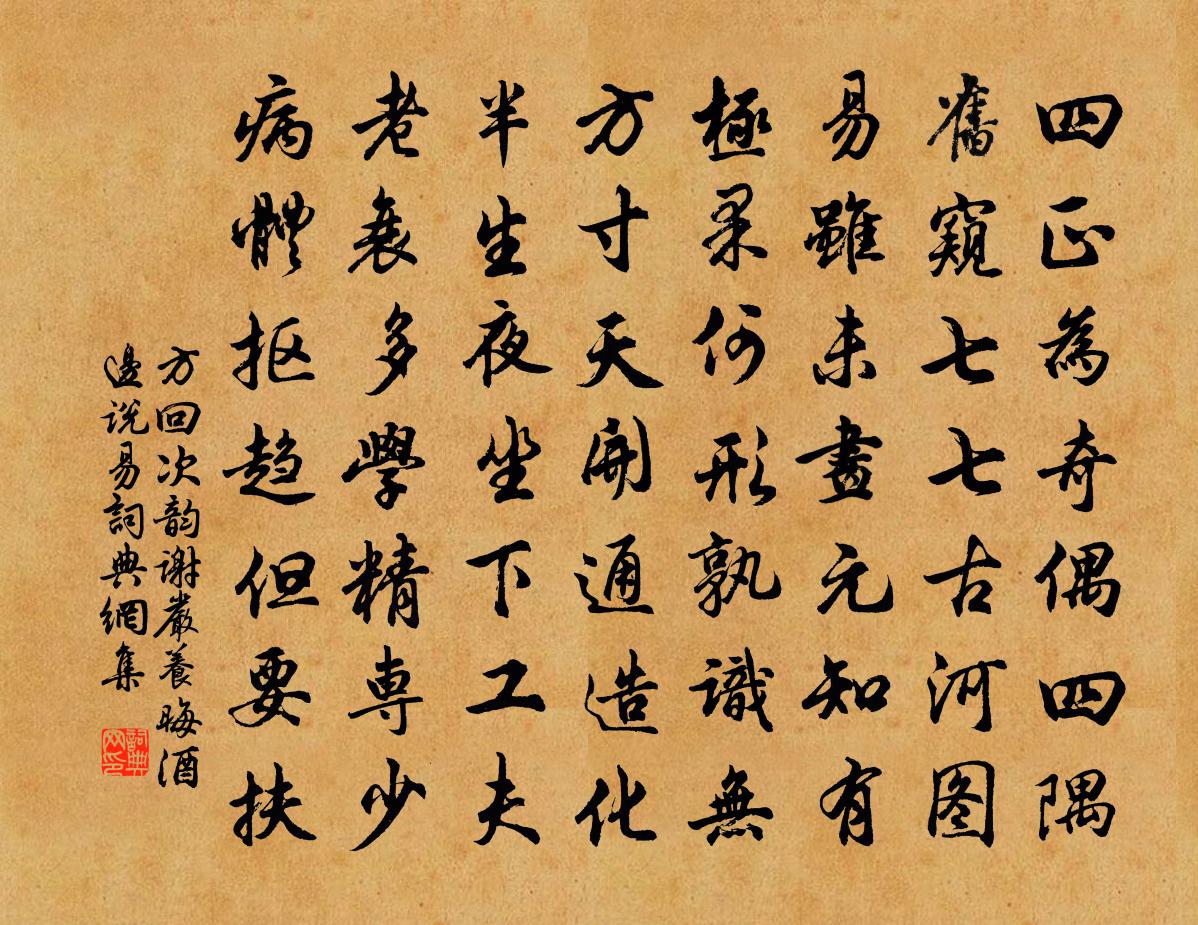 四正為奇偶四隅
舊窺七七古河图
易雖未畫元知有
極果何形孰識無
方寸天開通造化
半生夜坐下工夫
老衰多學精専少
病體抠趋但要扶
方回次韵謝嚴養晦酒
邊说易詞典網集
詞典
网印